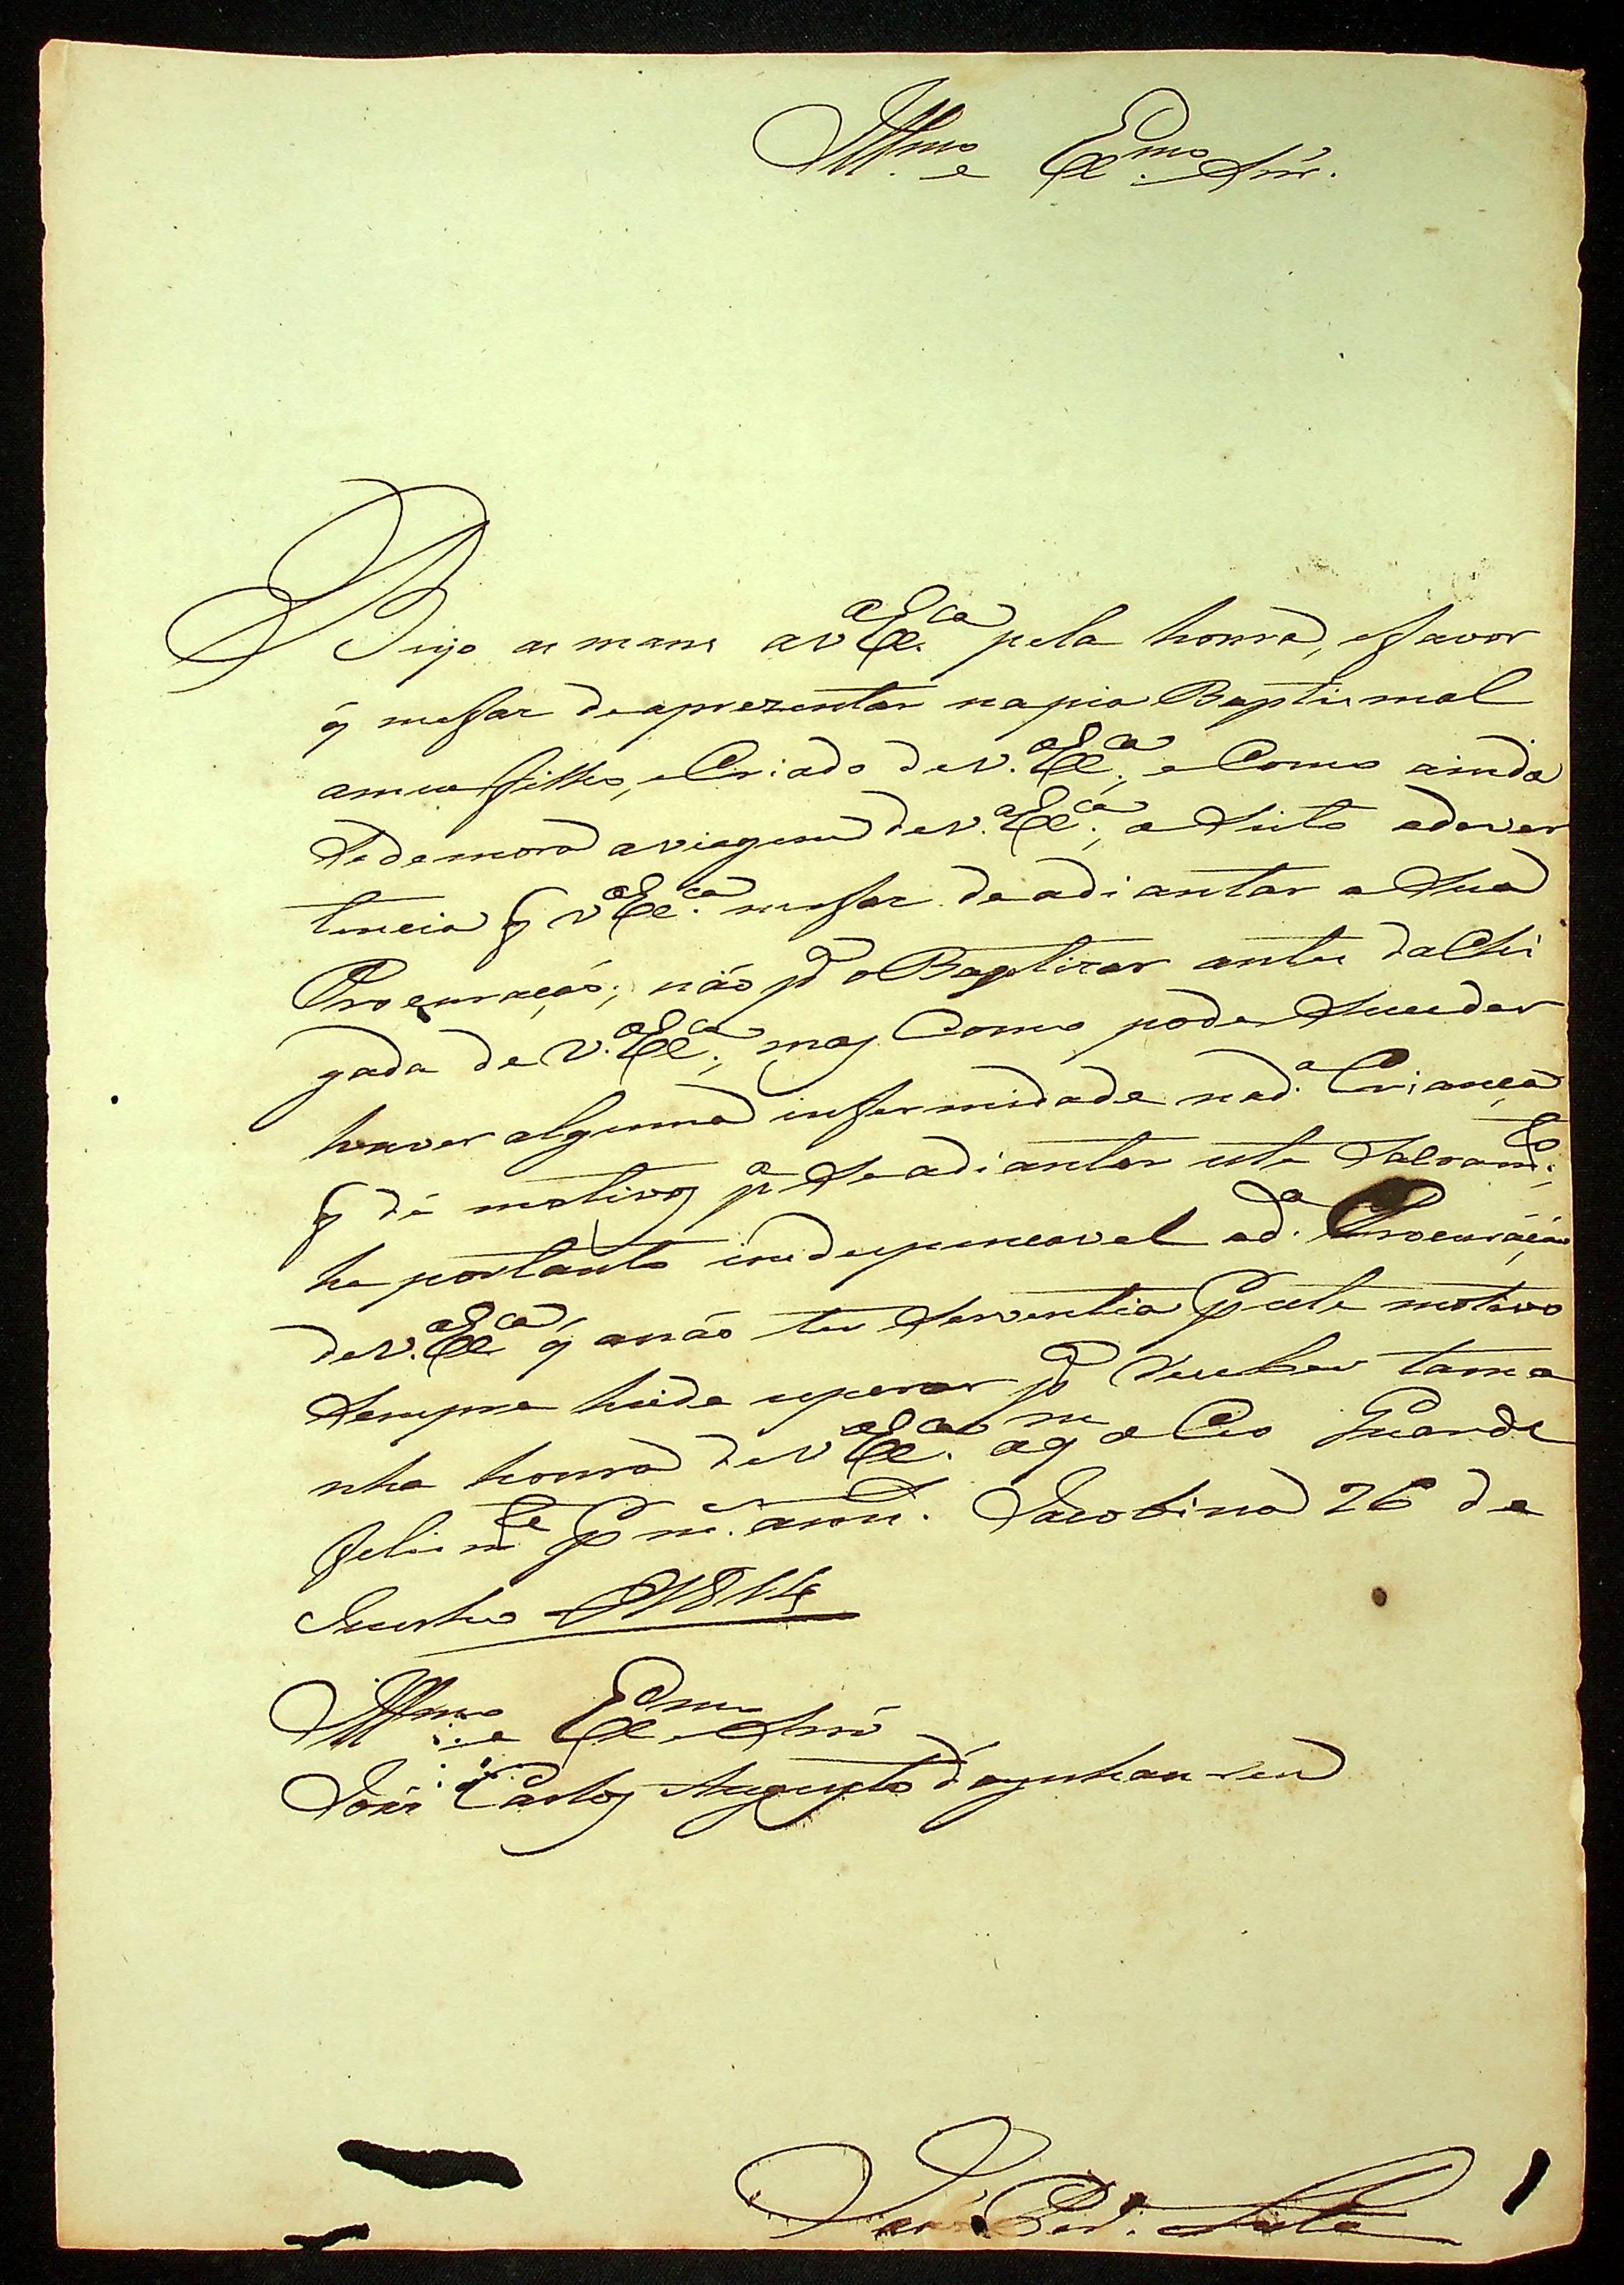 Illmo. e Exmo. Snr.
Beijo as maons a V Exca. pela honra, e favor
q̃ mefaz de aprezentar na pia Baptismal
ameu filho, e Criado de V. Exca., e Como ainda
Sedemora aviagem de V. Exca., a Seito adever
tencia q̃ V Exca. mefaz de adiantar a Sua
Procuraçaõ; não pa. o Baptizar antes da Che
gada de V. Exca.; mas Como pode Suceder
haver alguma infermidade na da. Criança
q̃ dê motivos pa. Se adiantar este Sacramto.
he portanto indespençavel a da. Procuração
de V. Exca. q̃ a não ter Serventia por este motivo
Sempre hade esperar pa. receber tama
nha honra de V Exca. a qm o Ceo Guarde
felismte. por ms. anns. Jacobina 26 de
Junho de 1814
Illmo. e Exmo. Snr.
João Carlos Augusto d'Oynhausen
João Per. Leite